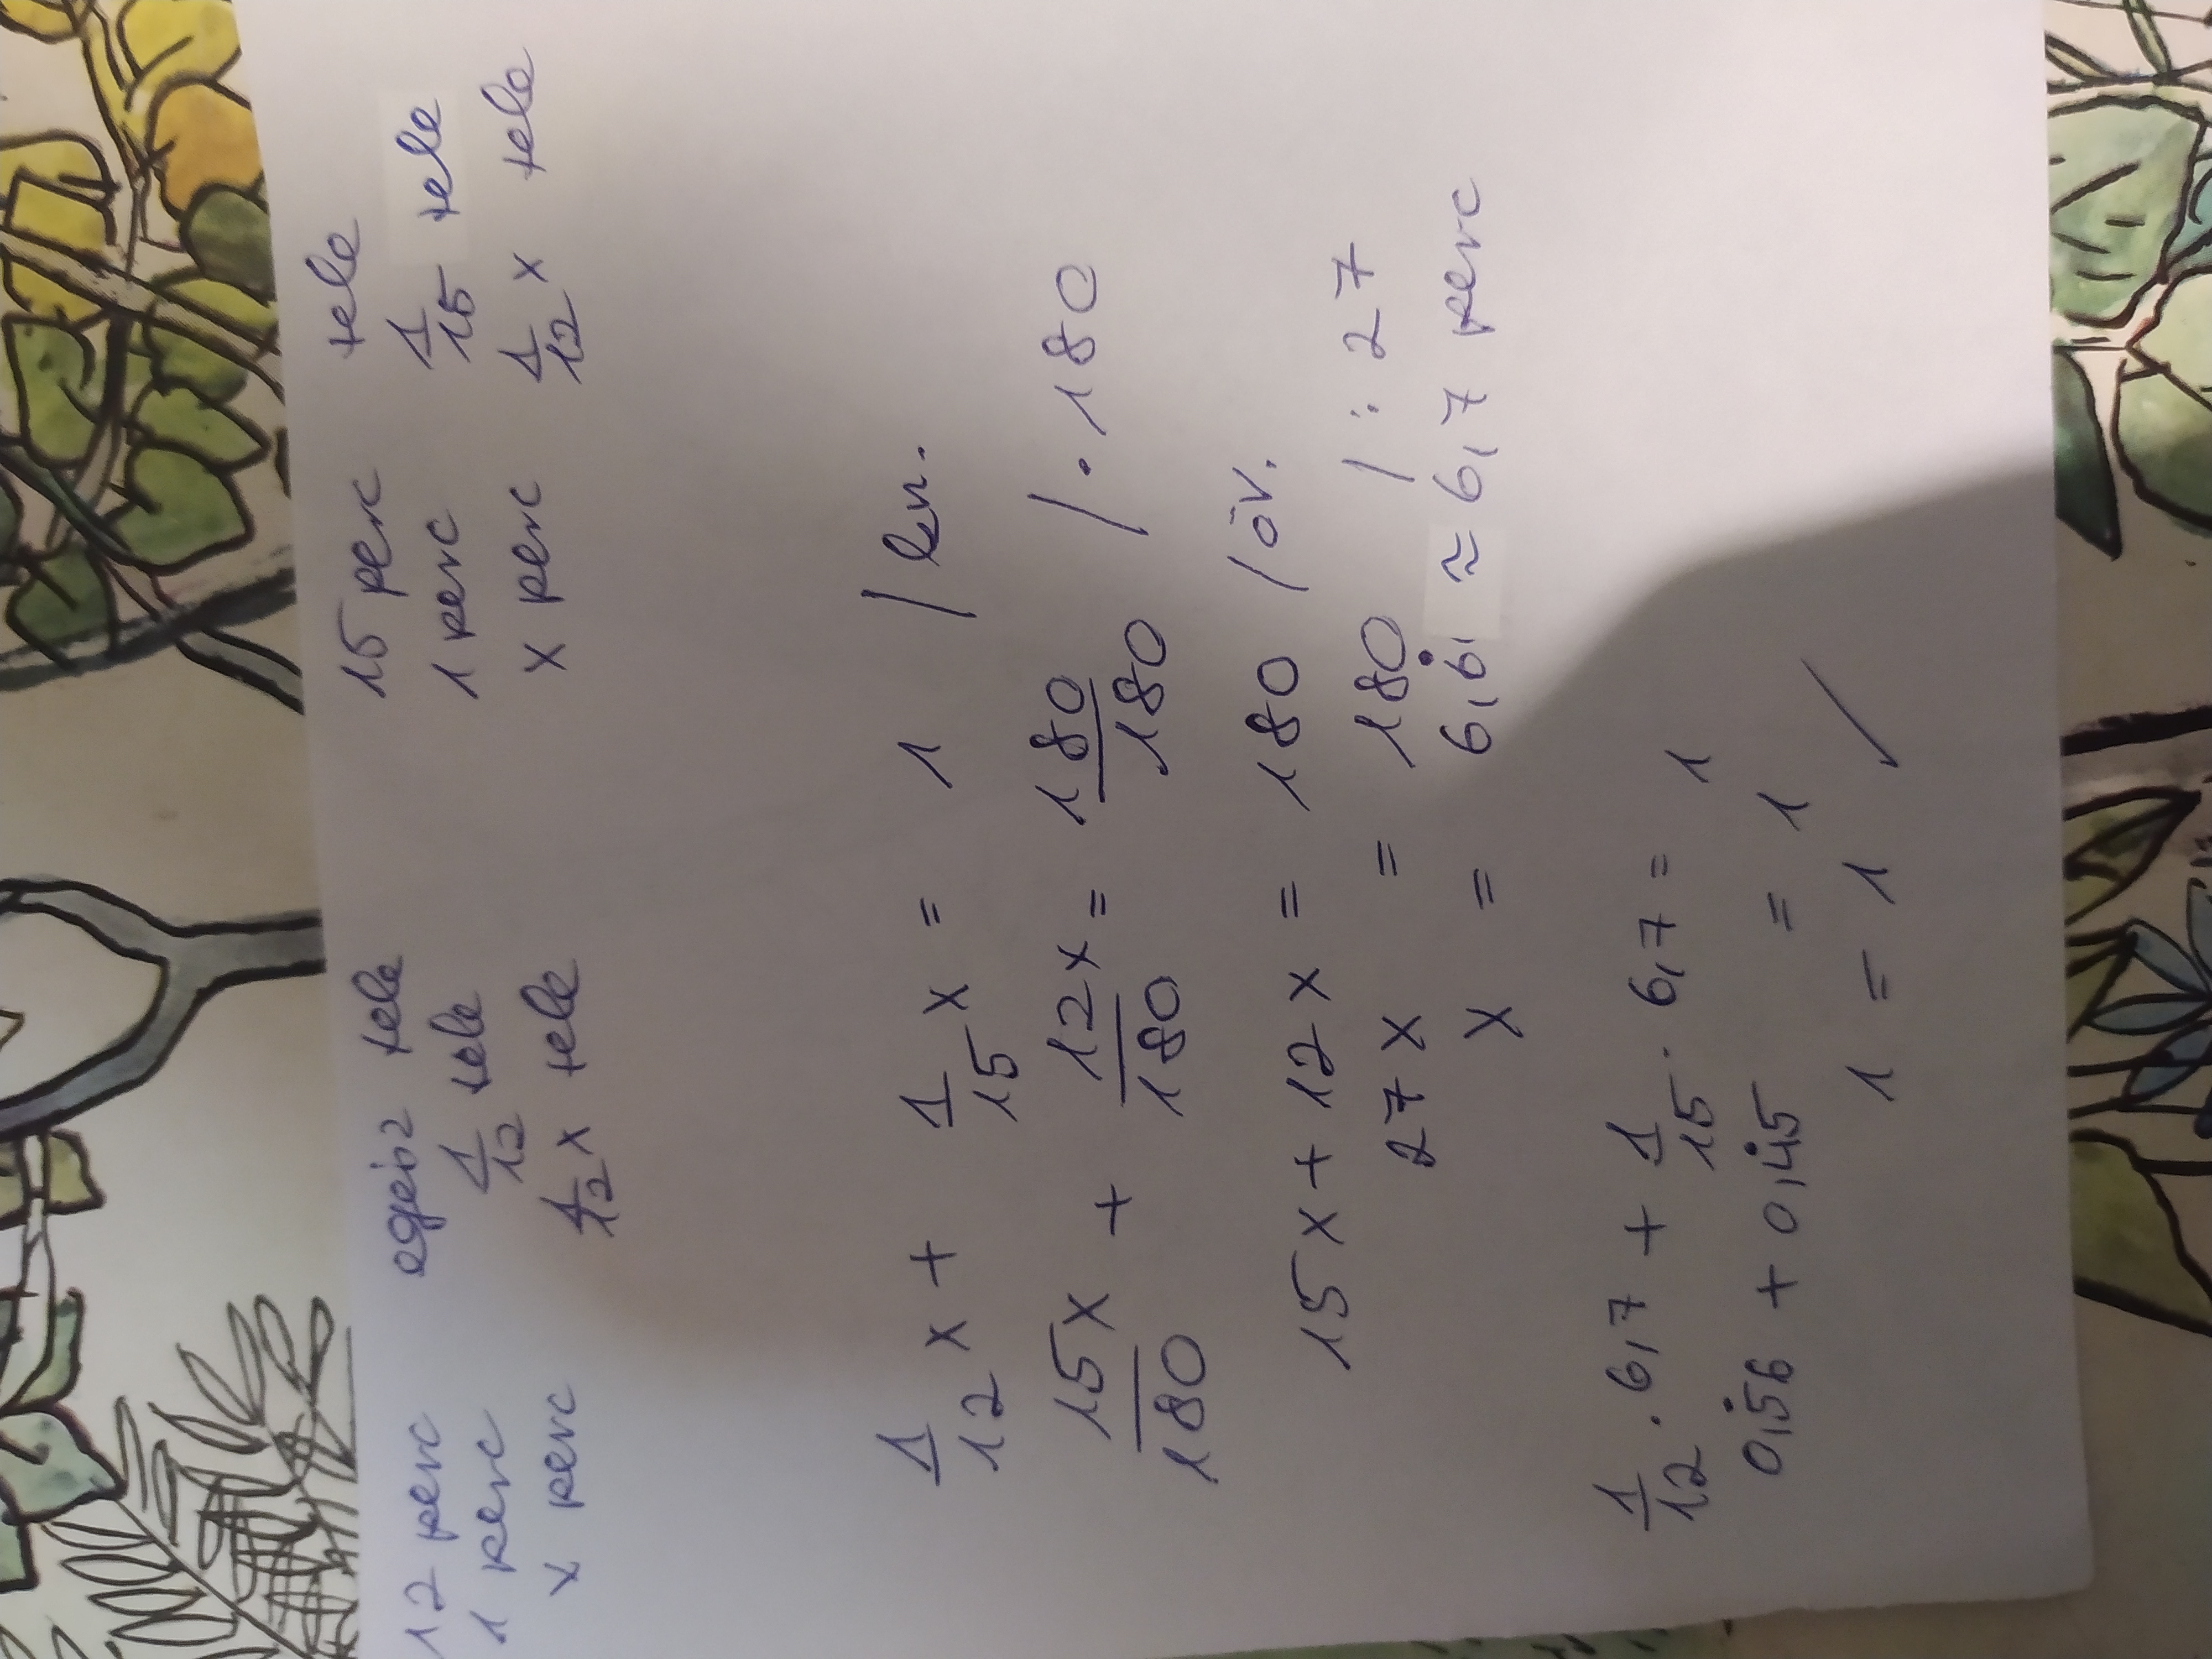 12 perc egész tele 15 perc tele
1 perc 1/12 tele 1 perc 1/15 tele
x perc 1/12 x tele x perc 1/12 x tele
1/12 x + 1/15 x = 1 / kv.
15x/180 + 12x/180 = 180/180 / · 180
15x + 12x = 180 / öv.
27x = 180 / : 27
x = 6,6̇ ≈ 6,7 perc
1/12 · 6,7 + 1/15 · 6,7 = 1
0,5̇6 + 0,4̇5 = 1
1 = 1 /